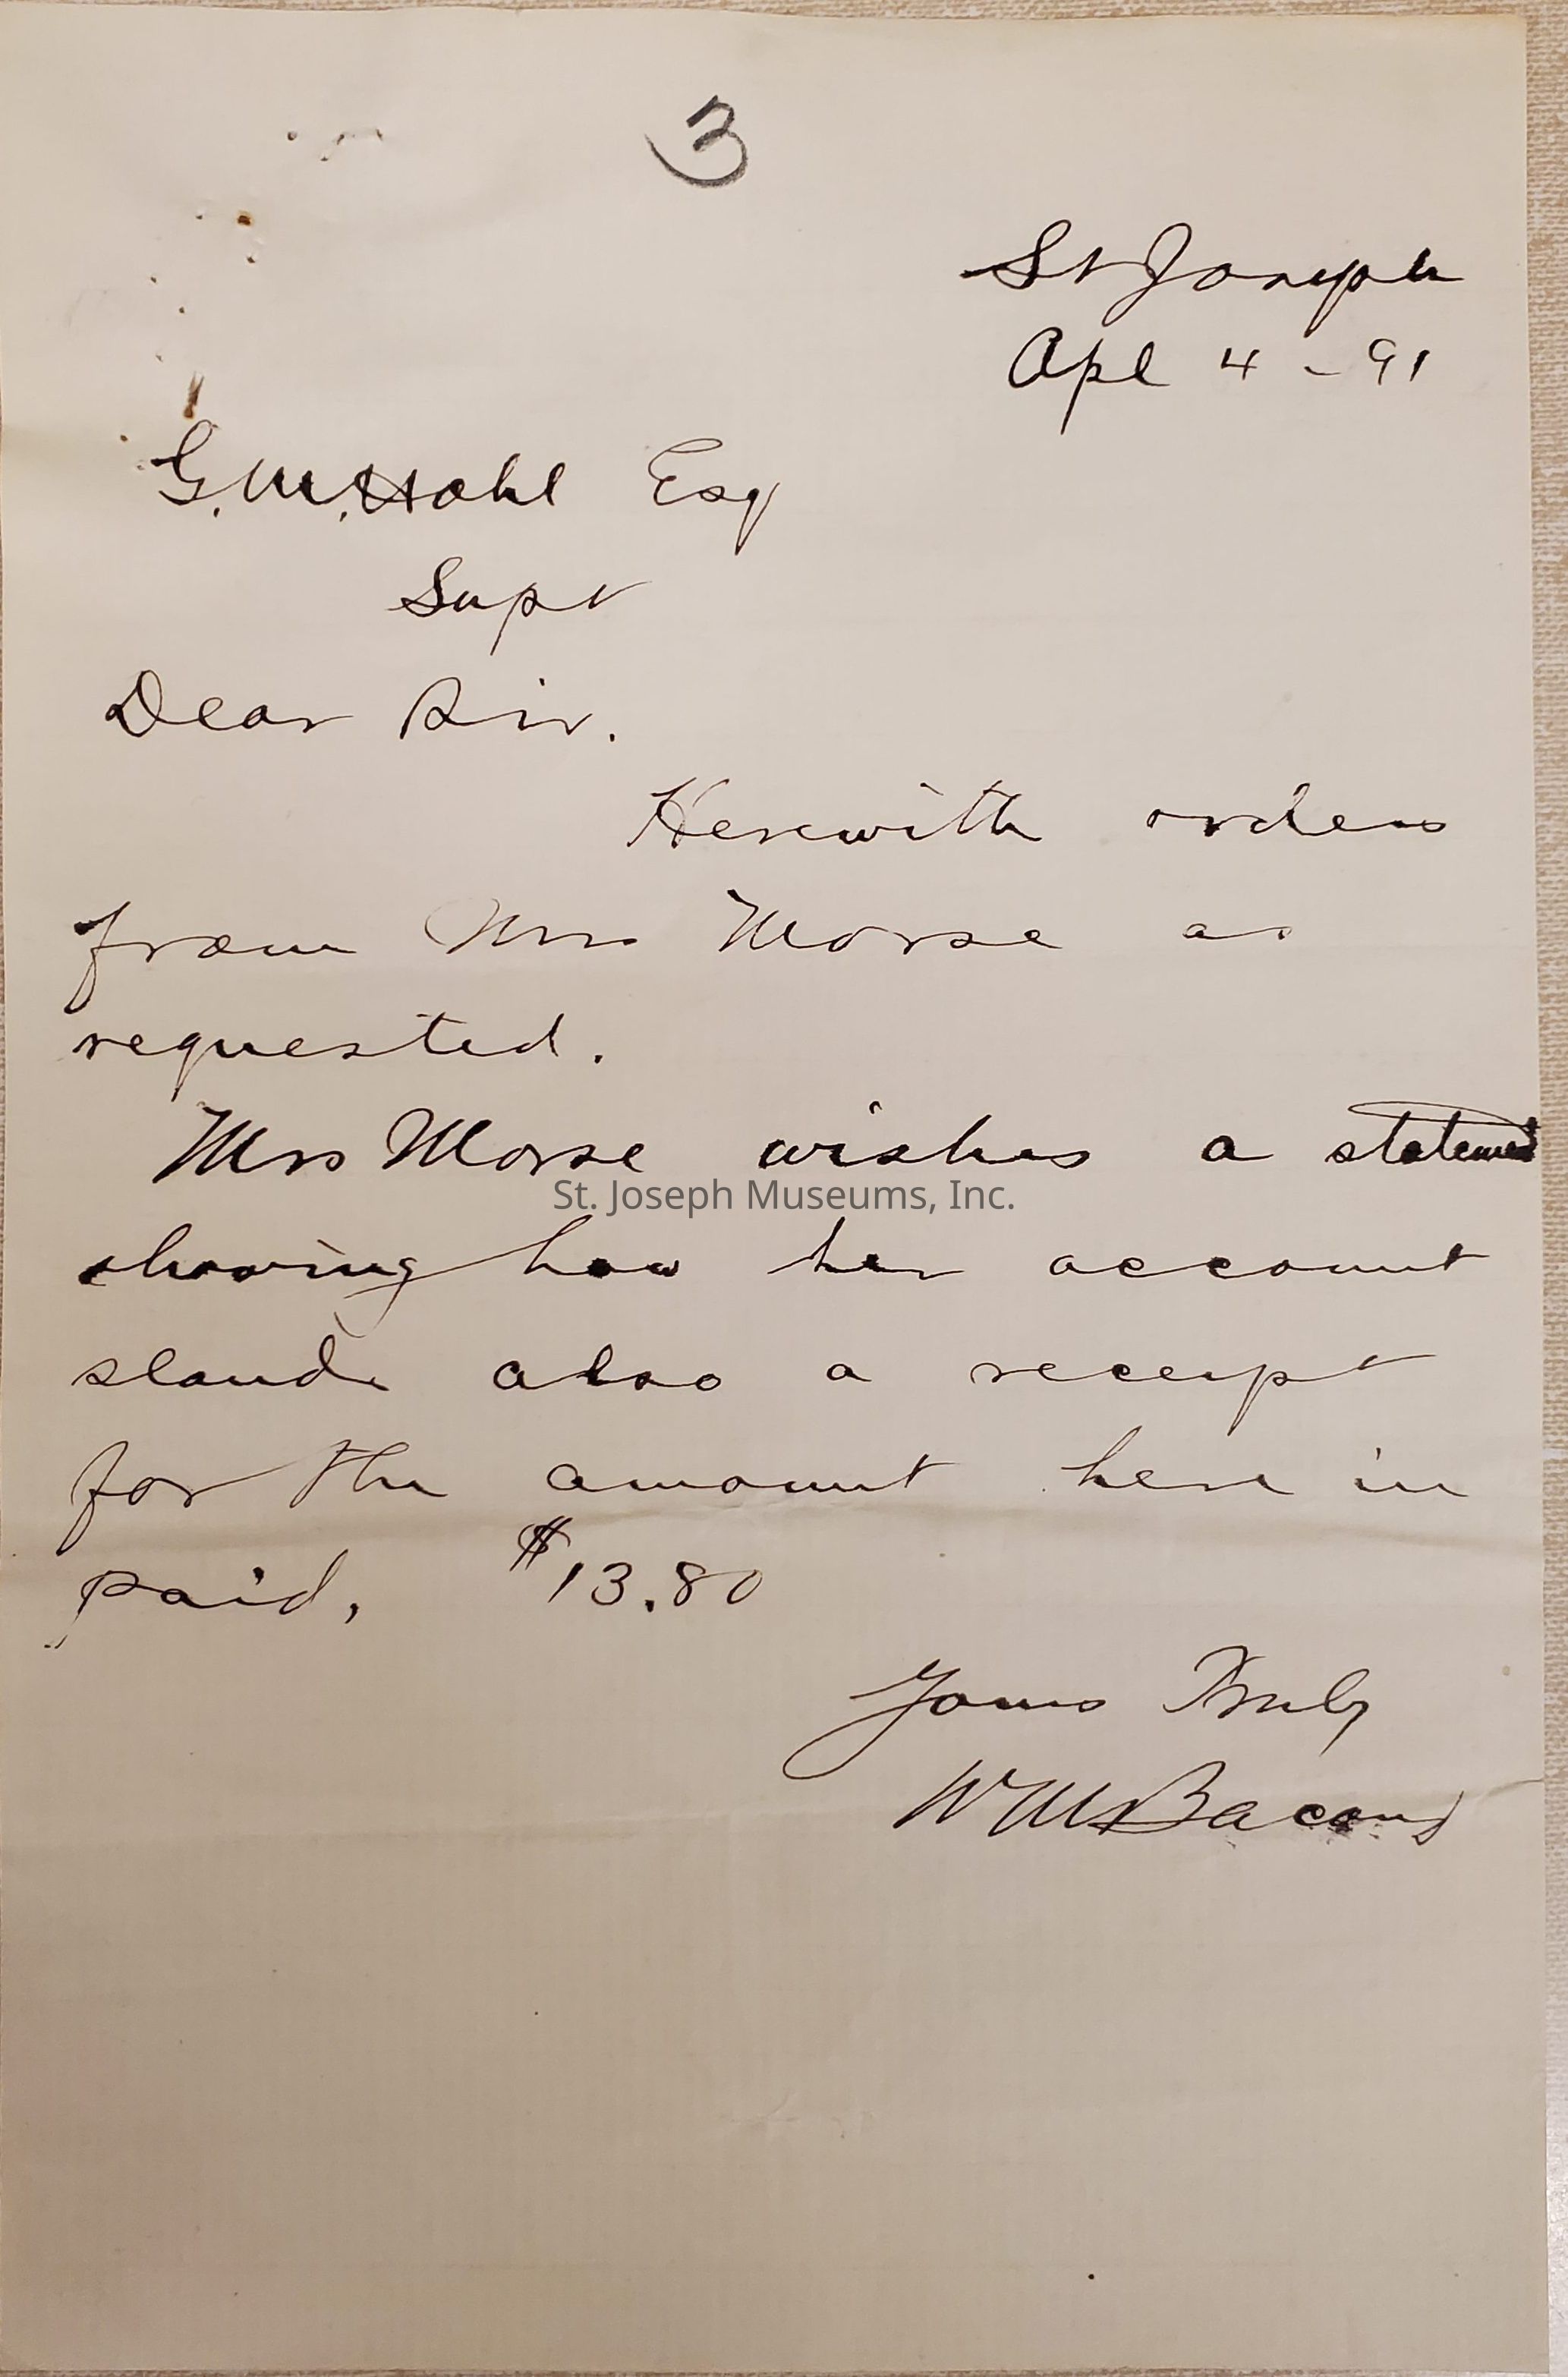 3
St Joseph
Apl 4 - 91
G. M. Hohl Esq
Supt
Dear Sir.
Herewith orders
from Mrs Morse as
requested.
Mrs Morse wishes a statement
St. Joseph Museums, Inc.
showing how her account
stands also a receipt
for the amount here in
paid, $13.80
Yours Truly
W M Bacon